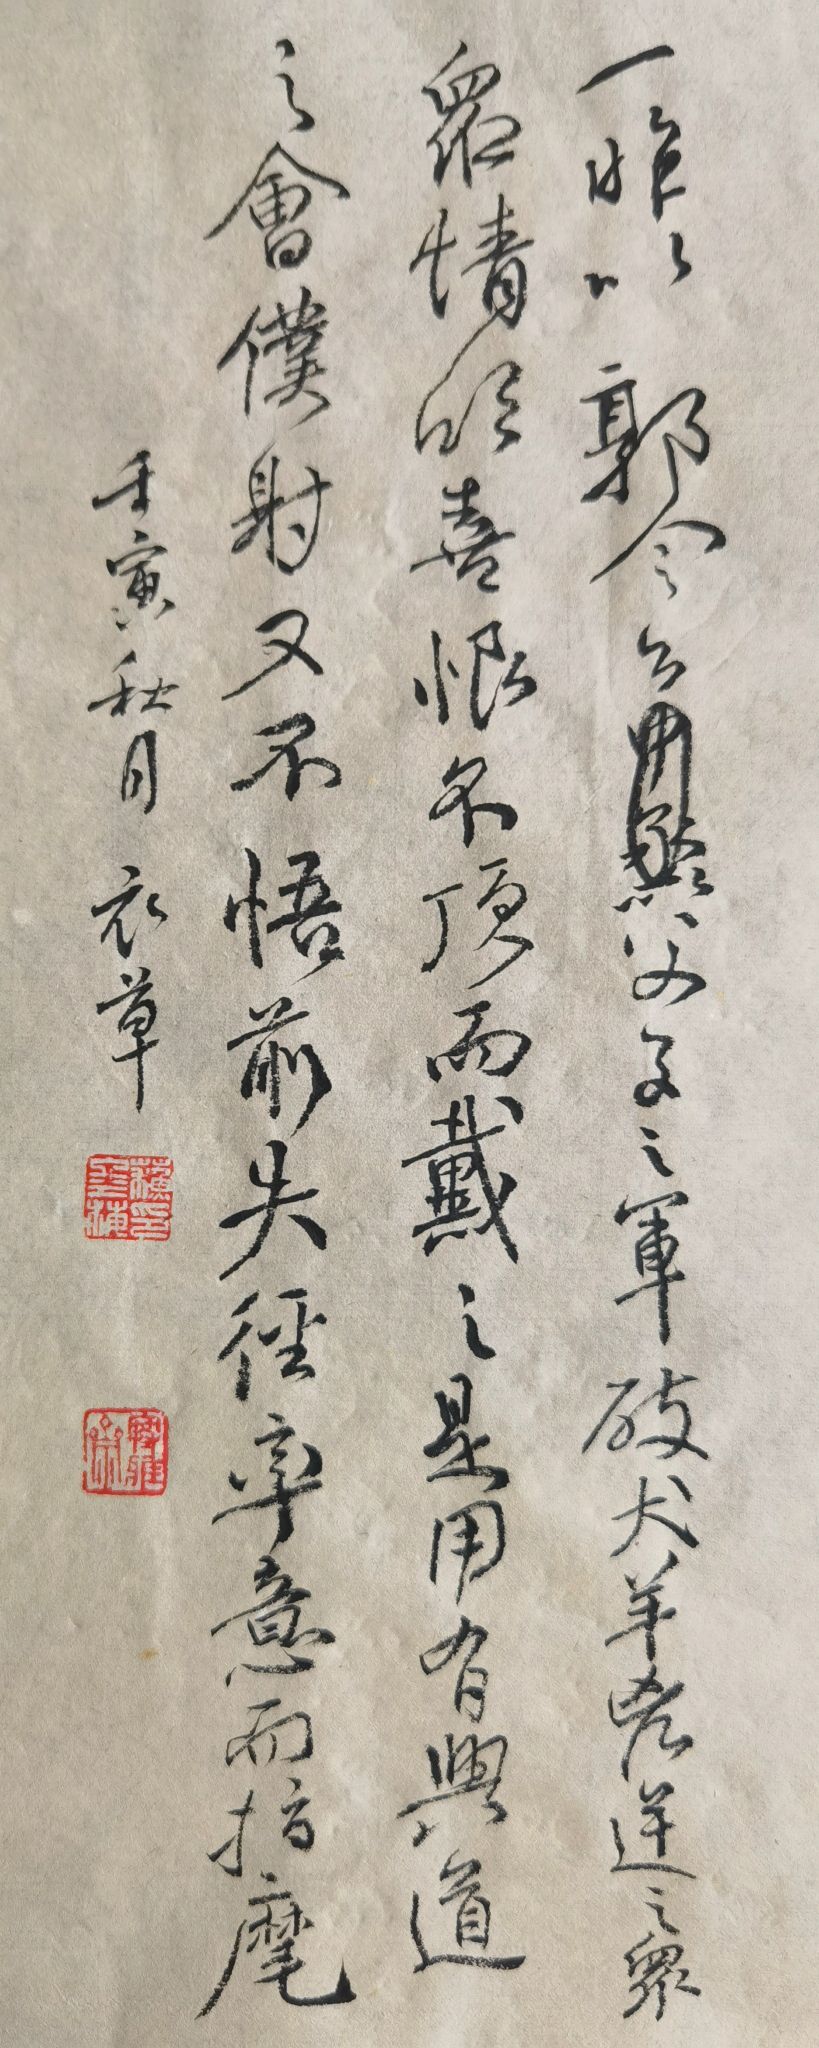 一昨以郭令公父子之軍破犬羊兇逆之眾
眾情欣喜恨不頂而戴之是用有興道
之會僕射又不悟前失徑率意而指麾
壬寅秋月 衣草